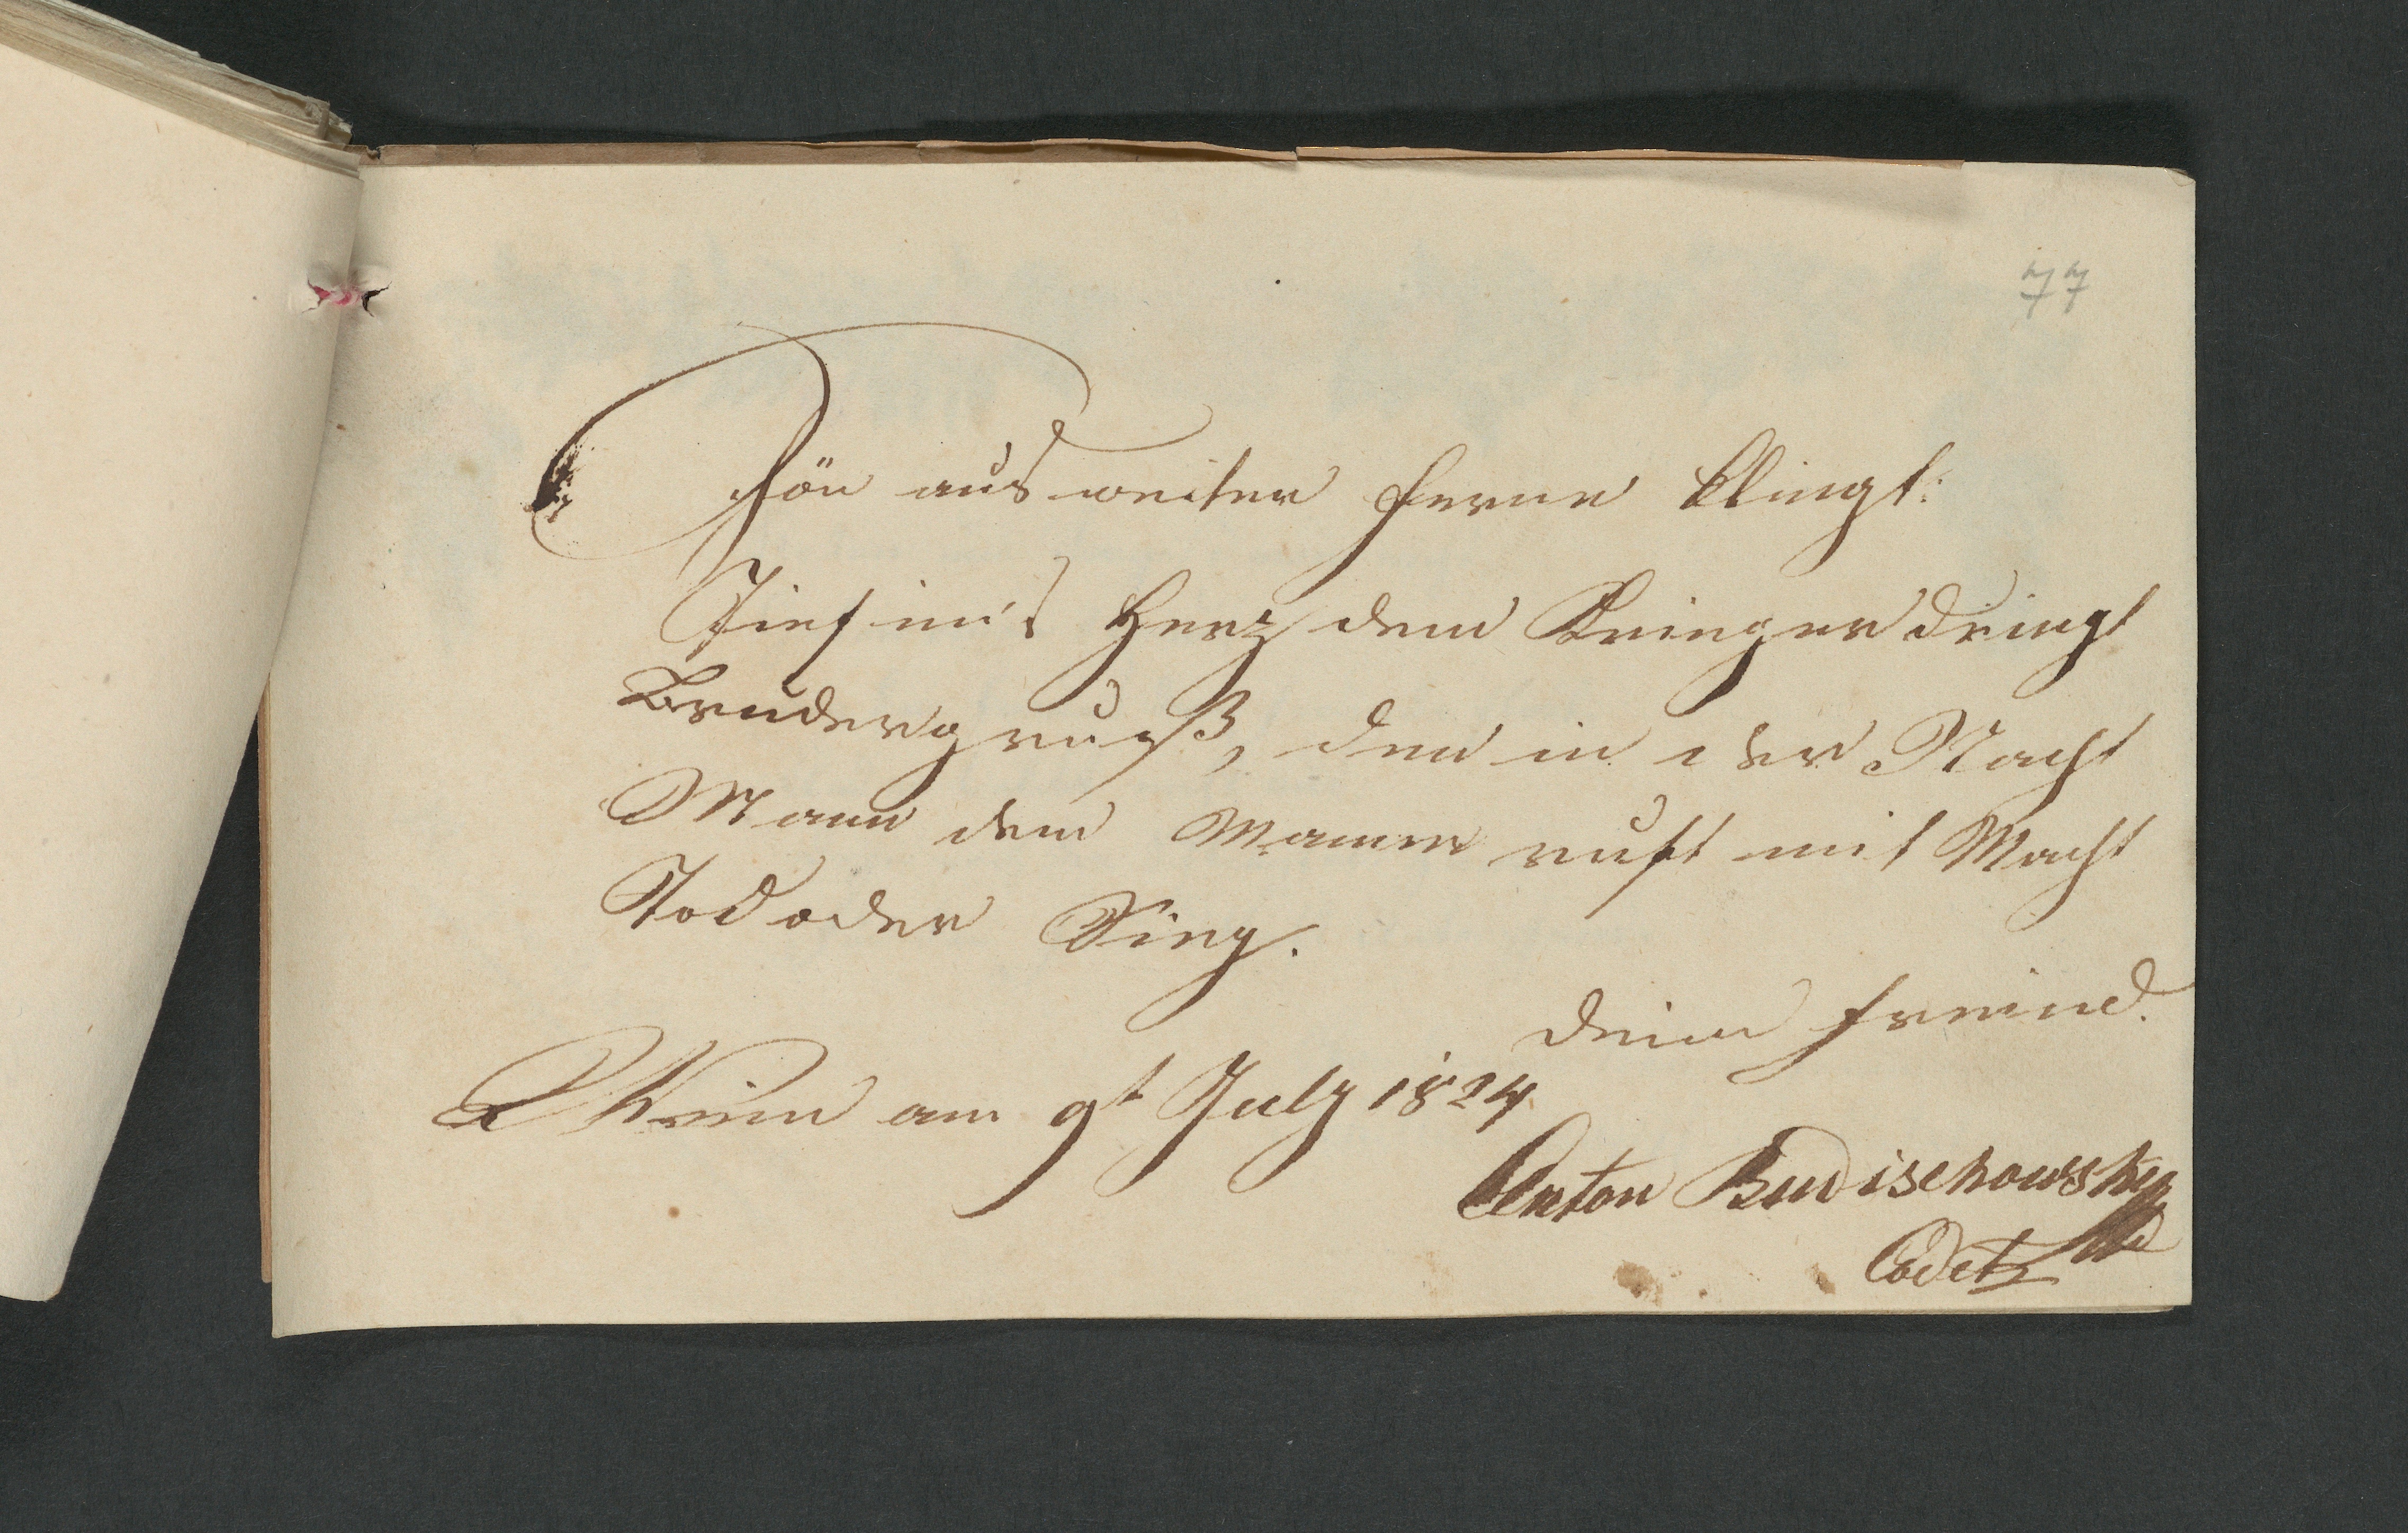 77
Tön aus weiter Ferne klingt:
Tief in's Herz dem Krieger dringt
Brudergruß, den in der Nacht
Mann dem Manne ruft mit Macht
Tod oder Sieg.
Dein Freund.
Wien am 9t July 1824
Anton Budischowsky
Cadet